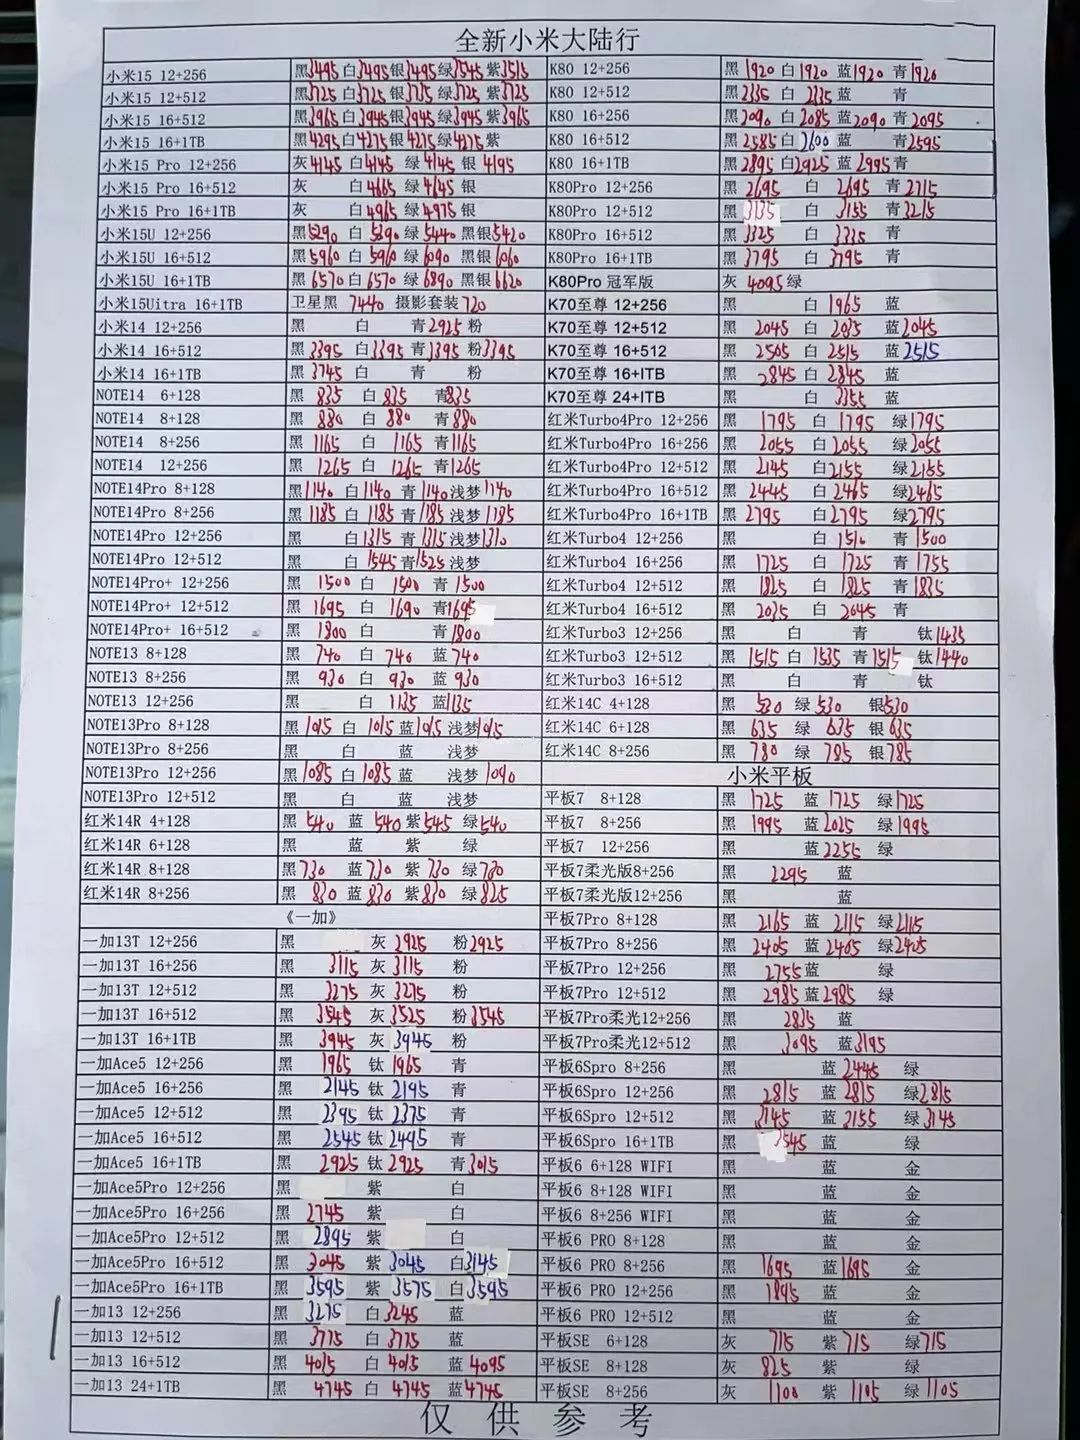 全新小米大陆行
小米15 12+256 黑3495 白3495 银3495 绿3545 紫3515 K80 12+256 黑 1920 白 1920 蓝1920 青 1920
小米15 12+512 黑3725 白3725 银3725 绿3725 紫3725 K80 12+512 黑2335 白 2335 蓝 青
小米15 16+512 黑3965 白3945 银3945 绿3945 紫3965 K80 16+256 黑2090 白 2085 蓝2090 青 2095
小米15 16+1TB 黑4295 白4275 银4275 绿4275 紫 K80 16+512 黑2585 白 2600 蓝 青2595
小米15 Pro 12+256 灰4145 白4145 绿 4145 银 4195 K80 16+1TB 黑2895 白2925 蓝 2995 青
小米15 Pro 16+512 灰 白4665 绿4645 银 K80Pro 12+256 黑 2695 白 2695 青 2715
小米15 Pro 16+1TB 灰 白4965 绿4975 银 K80Pro 12+512 黑 3135 白 3155 青3215
小米15U 12+256 黑5290 白 5390 绿 5440 黑银5420 K80Pro 16+512 黑 3325 白 3335 青
小米15U 16+512 黑5960 白 5960 绿 6090 黑银6060 K80Pro 16+1TB 黑 3795 白 3795 青
小米15U 16+1TB 黑 6570 白6570 绿 6890 黑银6620 K80Pro 冠军版 灰 4095 绿
小米15Uitra 16+1TB 卫星黑 7440 摄影套装720 K70至尊 12+256 黑 白 1965 蓝
小米14 12+256 黑 白 青2925 粉 K70至尊 12+512 黑 2045 白 2035 蓝2045
小米14 16+512 黑 3395 白3395 青3395 粉3395 K70至尊 16+512 黑 2505 白 2515 蓝2515
小米14 16+1TB 黑 3745 白 青 粉 K70至尊 16+ITB 黑 2845 白 2845 蓝
NOTE14 6+128 黑 835 白 835 青835 K70至尊 24+ITB 黑 白 3355 蓝
NOTE14 8+128 黑 880 白 880 青880 红米Turbo4Pro 12+256 黑 1795 白 1795 绿1795
NOTE14 8+256 黑 1165 白 1165 青1165 红米Turbo4Pro 16+256 黑 2055 白 2055 绿2055
NOTE14 12+256 黑 1265 白 1265 青1265 红米Turbo4Pro 12+512 黑 2145 白2155 绿2155
NOTE14Pro 8+128 黑1140 白1140 青1140 浅梦1140 红米Turbo4Pro 16+512 黑 2445 白 2465 绿2465
NOTE14Pro 8+256 黑1185 白 1185 青1185 浅梦1185 红米Turbo4Pro 16+1TB 黑 2795 白2795 绿2795
NOTE14Pro 12+256 黑 白1315 青1315 浅梦1310 红米Turbo4 12+256 黑 白 1510 青 1500
NOTE14Pro 12+512 黑 白 1545 青1525 浅梦 红米Turbo4 16+256 黑 1725 白 1725 青 1755
NOTE14Pro+ 12+256 黑 1500 白 1500 青 1500 红米Turbo4 12+512 黑 1825 白 1825 青1835
NOTE14Pro+ 12+512 黑 1695 白 1690 青1695 红米Turbo4 16+512 黑 2035 白 2045 青
NOTE14Pro+ 16+512 黑 1800 白 青1800 红米Turbo3 12+256 黑 白 青 钛1435
NOTE13 8+128 黑 740 白 740 蓝 740 红米Turbo3 12+512 黑 1515 白 1535 青1515 钛1440
NOTE13 8+256 黑 930 白 930 蓝 930 红米Turbo3 16+512 黑 白 青 钛
NOTE13 12+256 黑 白 1135 蓝1135 红米14C 4+128 黑 530 绿 530 银530
NOTE13Pro 8+128 黑 1015 白 1015 蓝1015 浅梦1015 红米14C 6+128 黑 635 绿 635 银635
NOTE13Pro 8+256 黑 白 蓝 浅梦 红米14C 8+256 黑 780 绿 785 银785
NOTE13Pro 12+256 黑1085 白1085 蓝 浅梦 1090 小米平板
NOTE13Pro 12+512 黑 白 蓝 浅梦 平板7 8+128 黑 1725 蓝 1725 绿1725
红米14R 4+128 黑 540 蓝 540 紫545 绿540 平板7 8+256 黑 1995 蓝2025 绿1995
红米14R 6+128 黑 蓝 紫 绿 平板7 12+256 黑 蓝2255 绿
红米14R 8+128 黑730 蓝730 紫 730 绿730 平板7柔光版8+256 黑 2295 蓝
红米14R 8+256 黑 830 蓝830 紫830 绿825 平板7柔光版12+256 黑 蓝
《一加》 平板7Pro 8+128 黑 2165 蓝 2115 绿2115
一加13T 12+256 黑 灰 2925 粉2925 平板7Pro 8+256 黑 2405 蓝 2405 绿2405
一加13T 16+256 黑 3115 灰 3115 粉 平板7Pro 12+256 黑 2755 蓝 绿
一加13T 12+512 黑 3275 灰 3275 粉 平板7Pro 12+512 黑 2985 蓝2985 绿
一加13T 16+512 黑 3545 灰 3525 粉3545 平板7Pro柔光12+256 黑 2835 蓝
一加13T 16+1TB 黑 3945 灰 3945 粉 平板7Pro柔光12+512 黑 3095 蓝3195
一加Ace5 12+256 黑 1965 钛 1965 青 平板6Spro 8+256 黑 蓝 2445 绿
一加Ace5 16+256 黑 2145 钛 2195 青 平板6Spro 12+256 黑 2815 蓝 2815 绿2815
一加Ace5 12+512 黑 2395 钛 2375 青 平板6Spro 12+512 黑 3145 蓝 3155 绿3145
一加Ace5 16+512 黑 2545 钛 2495 青 平板6Spro 16+1TB 黑 3545 蓝 绿
一加Ace5 16+1TB 黑 2925 钛 2925 青3015 平板6 6+128 WIFI 黑 蓝 金
一加Ace5Pro 12+256 黑 紫 白 平板6 8+128 WIFI 黑 蓝 金
一加Ace5Pro 16+256 黑 2745 紫 白 平板6 8+256 WIFI 黑 蓝 金
一加Ace5Pro 12+512 黑 2895 紫 白 平板6 PRO 8+128 黑 蓝 金
一加Ace5Pro 16+512 黑 3045 紫 3045 白3145 平板6 PRO 8+256 黑 1695 蓝1695 金
一加Ace5Pro 16+1TB 黑 3595 紫 3575 白3595 平板6 PRO 12+256 黑 1895 蓝 金
一加13 12+256 黑 3275 白3245 蓝 平板6 PRO 12+512 黑 蓝 金
一加13 12+512 黑 3775 白 3775 蓝 平板SE 6+128 灰 715 紫 715 绿715
一加13 16+512 黑 4015 白 4015 蓝 4095 平板SE 8+128 灰 825 紫 绿
一加13 24+1TB 黑 4745 白 4745 蓝4745 平板SE 8+256 灰 1100 紫 1105 绿 1105
仅 供 参 考